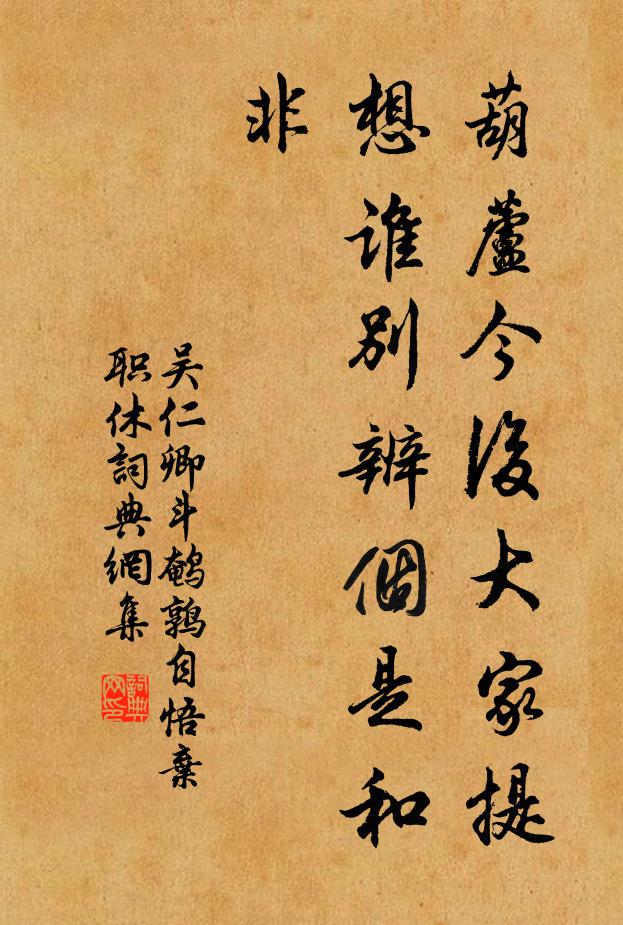 葫蘆今後大家提
想誰別辨個是和
非
吴仁卿斗鹌鹑自悟棄
职休詞典網集
詞典網印